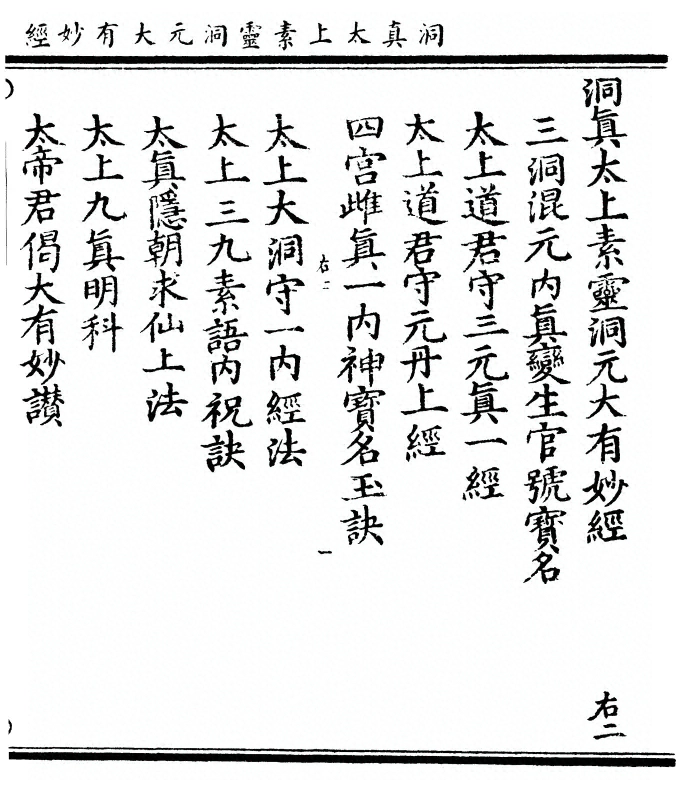 洞真太上素靈洞元大有妙經
洞眞太上素靈洞元大有妙經
右二
三洞混元内眞變生官號寶名
太上道君守三元眞一經
太上道君守元丹上經
四宮雌眞一内神寶名玉訣
右二
一
太上大洞守一内經法
太上三九素語内祝訣
太眞隱朝求仙上法
太上九眞明科
太帝君偈大有妙讃